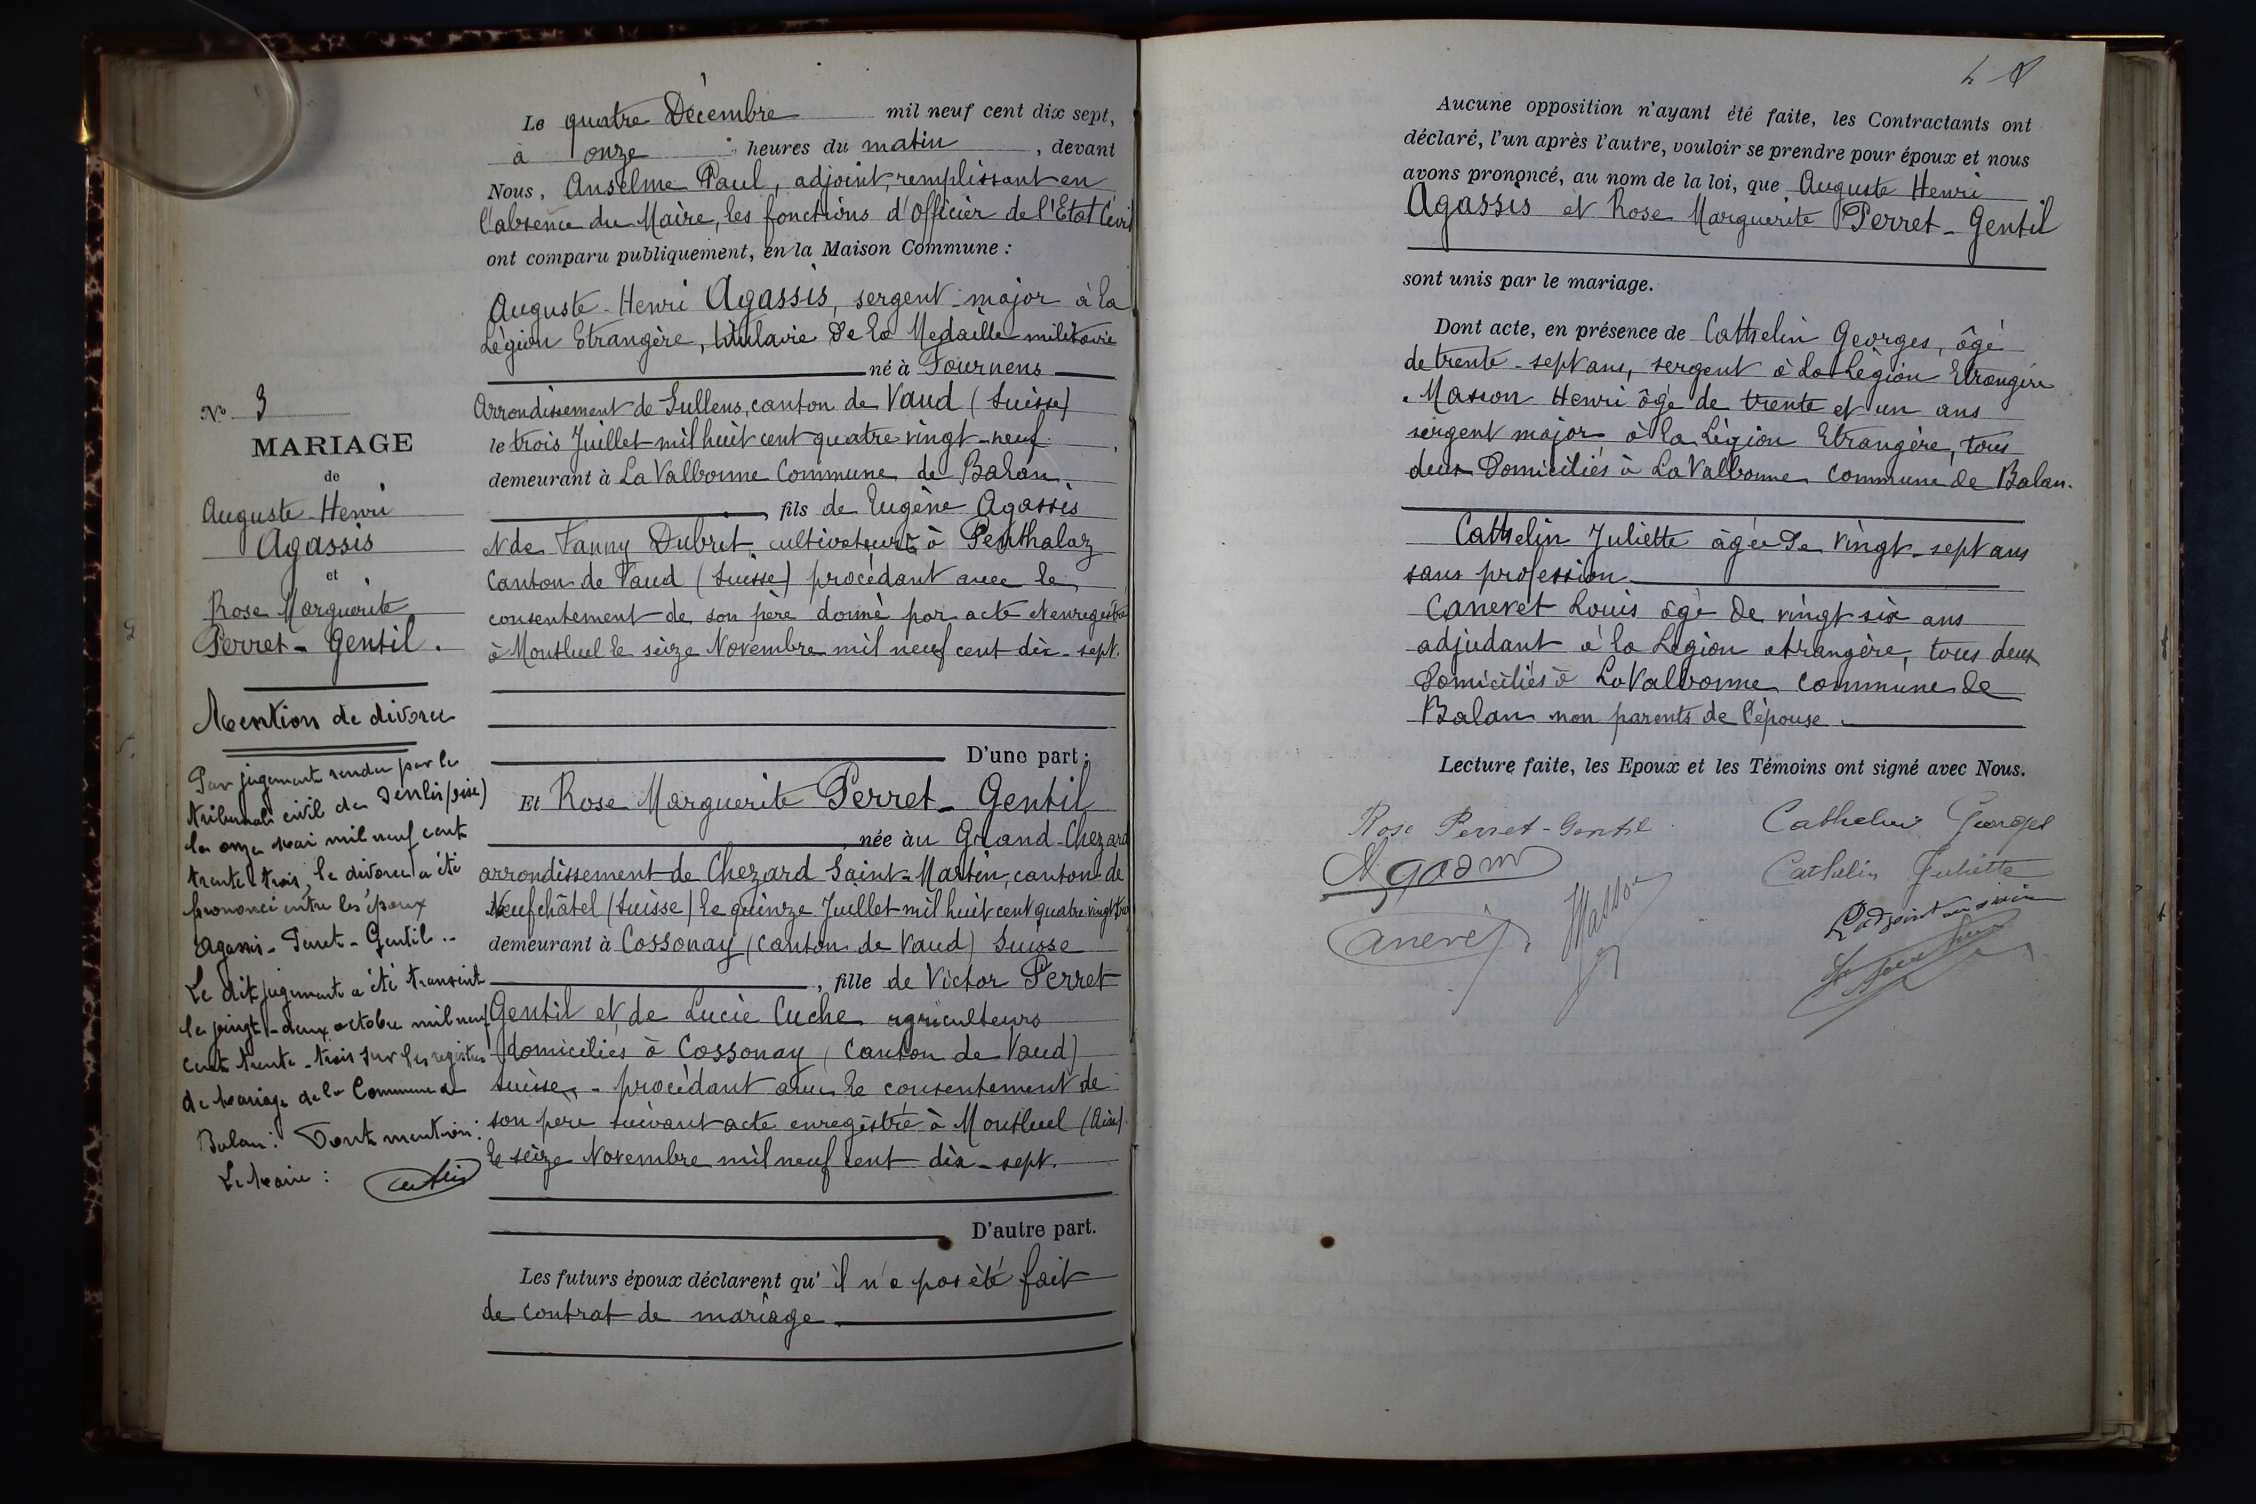 Le quatre Décembre mil neuf cent dix sept,
à onze heures du matin, devant
Nous, Anselme Paul, adjoint, remplissant en
l'absence du Maire, les fonctions d'Officier de l'Etat Civil
ont comparu publiquement, en la Maison Commune :
Auguste-Henri Agassis, sergent-major à la
Légion Etrangère, titulaire de la Medaille militaire
né à Tournens
Arrondissement de Sullens, canton de Vaud (Suisse)
le trois Juillet mil huit cent quatre vingt-neuf
demeurant à La Valbonne Commune de Balan
, fils de Eugène Agassis
et de Fanny Dubret, cultivateurs à Penthalaz
Canton de Vaud (Suisse) procédant avec le
consentement de son père donné par acte et enregistré
à Montluel le seize Novembre mil neuf cent dix-sept.
D'une part ;
Et Rose Marguerite Perret-Gentil
née au Grand-Chezard
arrondissement de Chezard Saint-Martin, canton de
Neufchâtel (Suisse) le quinze Juillet mil huit cent quatre vingt
demeurant à Cossonay (canton de Vaud) Suisse
, fille de Victor Perret
Gentil et de Lucie Cuche agriculteurs
domiciliés à Cossonay (Canton de Vaud)
Suisse,- procédant avec le consentement de
son père suivant acte enregistré à Montluel (Ain)
le seize Novembre mil neuf cent dix-sept.
D'autre part.
Les futurs époux déclarent qu'il n'a pas été fait
de contrat de mariage
N° 3
MARIAGE
de
Auguste Henri
Agassis
et
Rose Marguerite
Perret-Gentil.
Mention de divorce
Par jugement rendu par le
tribunal civil de Senlis (oise)
le onze Mai mil neuf cent
trente-trois, le divorce a été
prononcé entre les époux
Agassis-Perret-Gentil.-
Le dit jugement a été transcrit
le vingt-deux octobre mil neuf
cent trente-trois sur les registres
de Mariage de la Commune de
Balan. Dont mention :
Le Maire :
Aucune opposition n'ayant été faite, les Contractants ont
déclaré, l'un après l'autre, vouloir se prendre pour époux et nous
avons prononcé, au nom de la loi, que Auguste Henri
Agassis et Rose Marguerite Perret-Gentil
sont unis par le mariage.
Dont acte, en présence de Cathelin Georges, âgé
de trente-sept ans, sergent à la Légion Etrangère
Masson Henri âgé de trente et un ans
sergent major à la Légion Etrangère, tous
deux domiciliés à La Valbonne commune de Balan.
Cathelin Juliette âgée de vingt-sept ans
sans profession
Caneret Louis âgé de vingt six ans
adjudant à la Légion etrangère, tous deux
domiciliés à La Valbonne commune de
Balan non parents de l'épouse.
Lecture faite, les Epoux et les Témoins ont signé avec Nous.
Rose Perret-Gentil
Cathelin Georges
Agassis
Cathelin Juliette
Masson
L'adjoint au maire